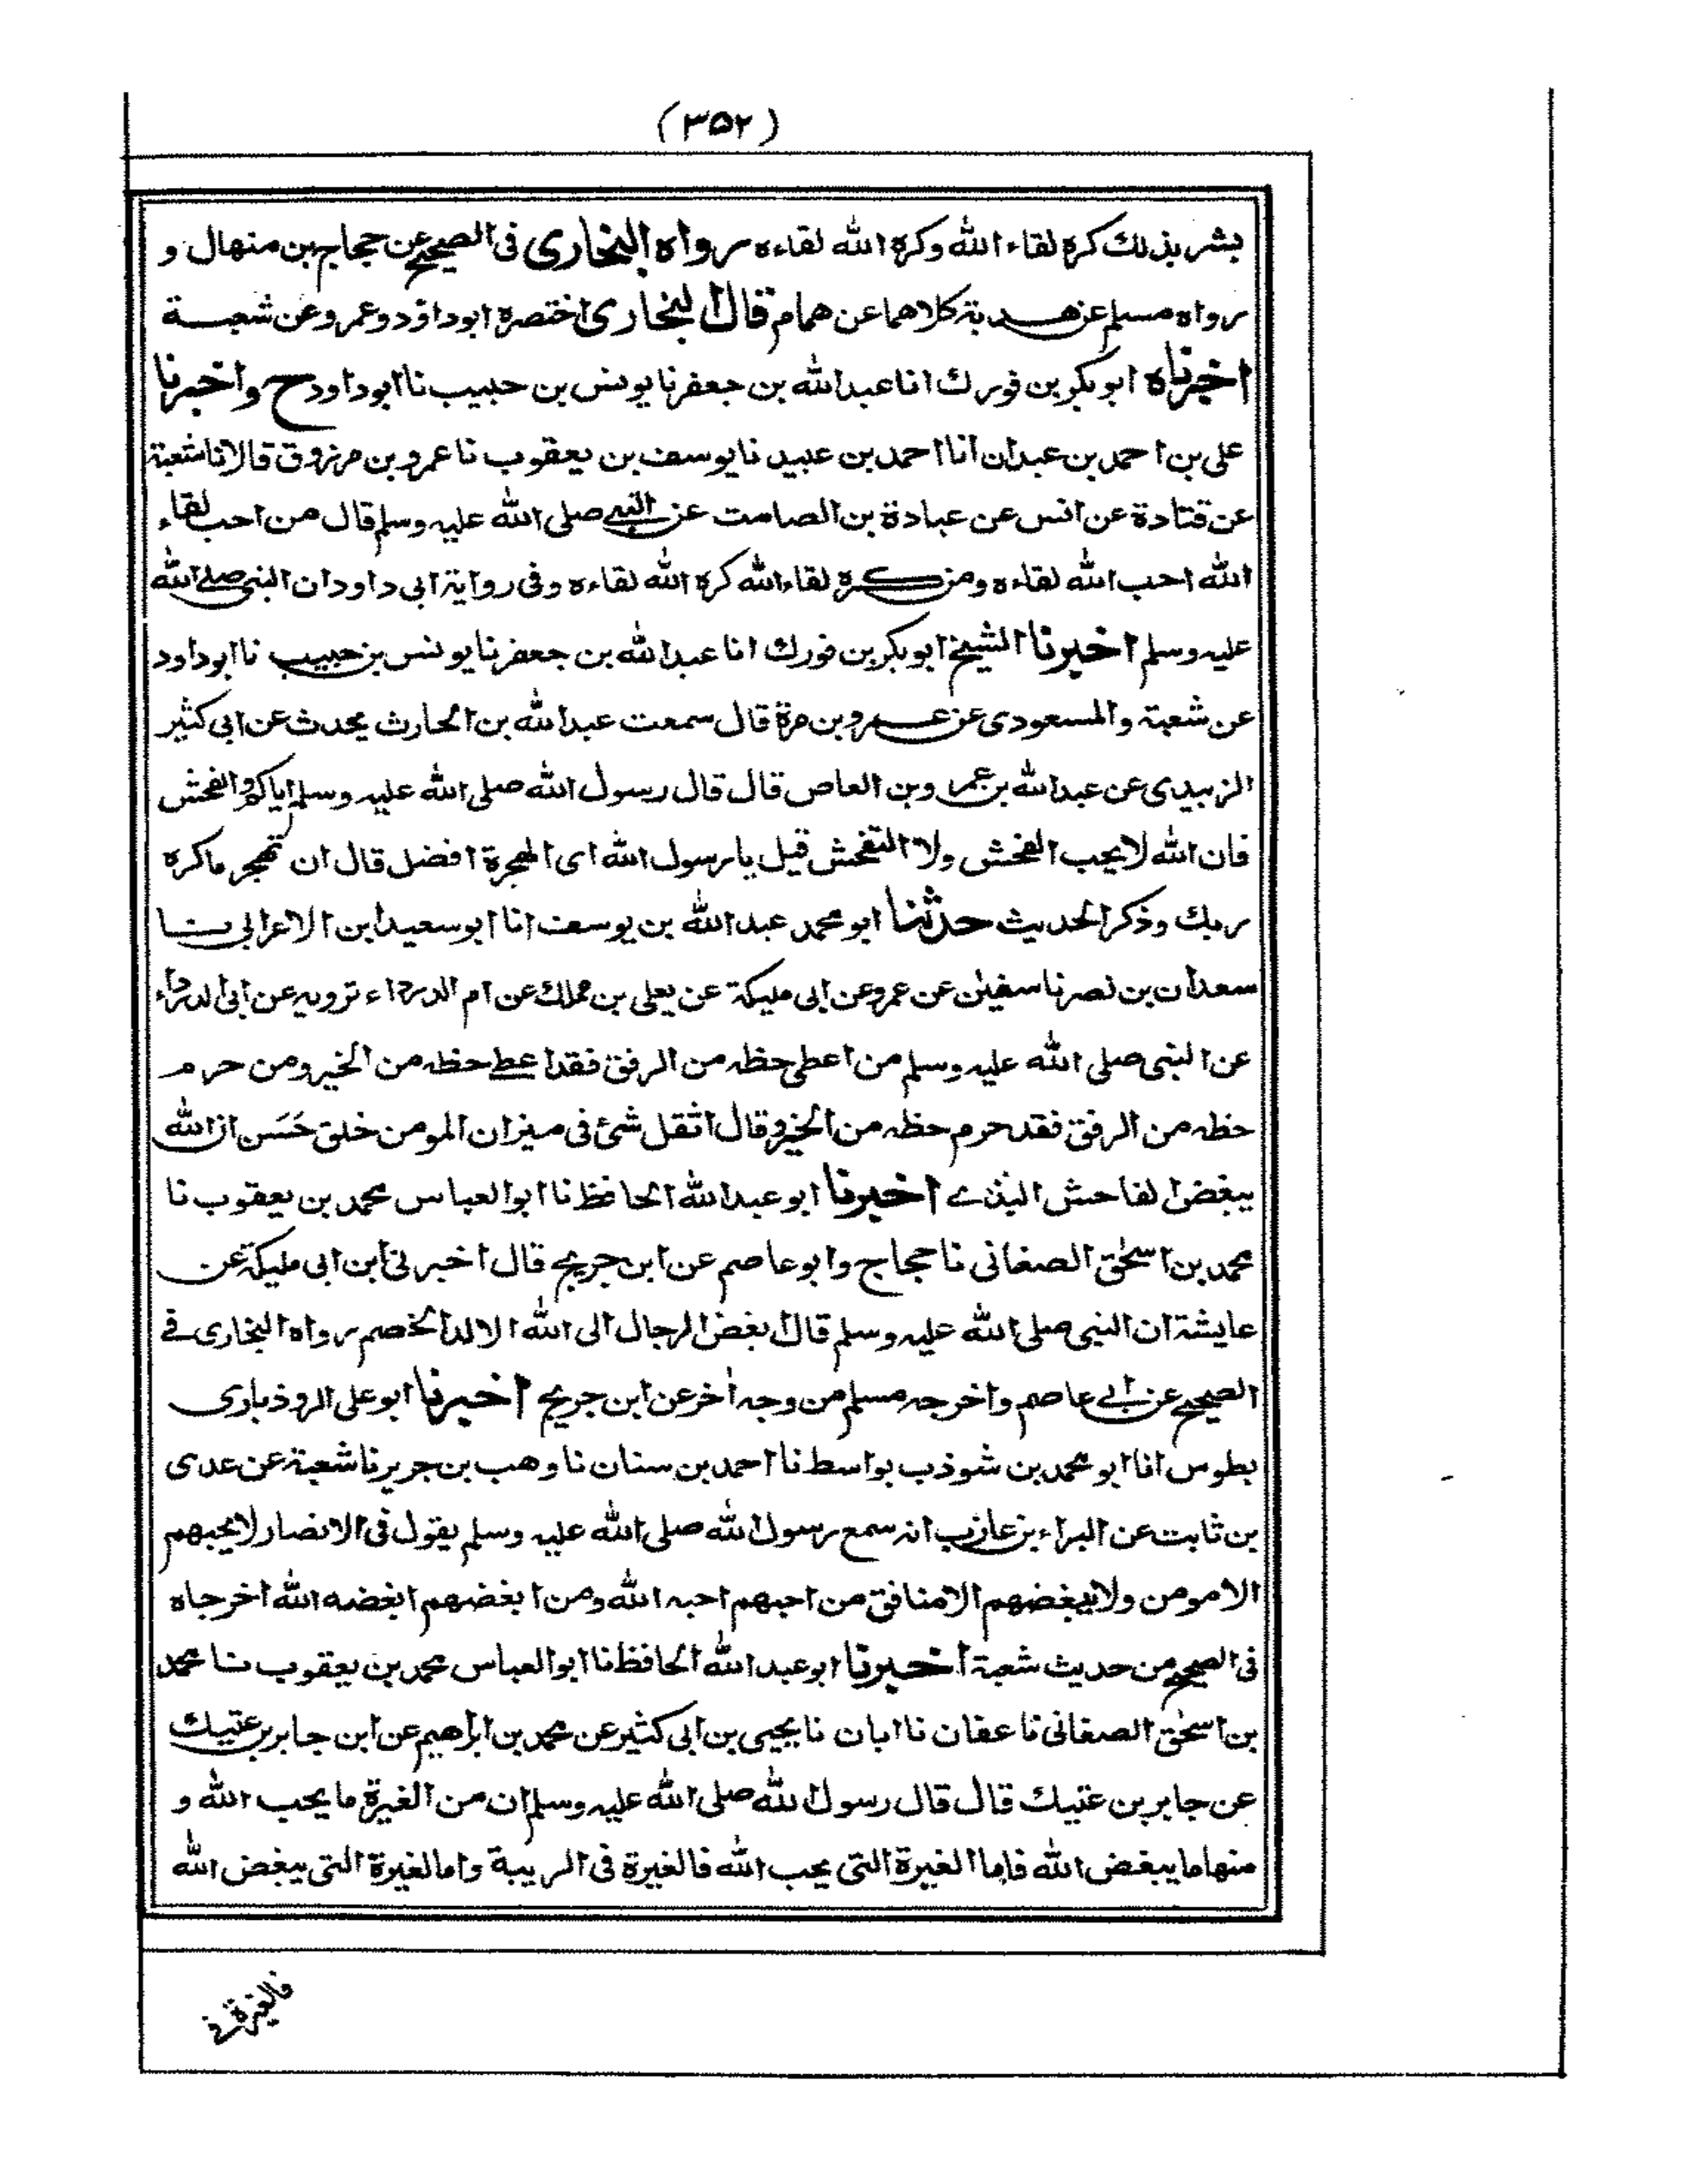 (۳۵۲)
بشر بذلك كره لقاء الله وكره الله لقاءه رواه البخارى فى الصحيح عن حجاج بن منهال و
رواه مسلم عن هدبة كلاهما عن همام قال البخارى اختصره ابوداؤد وعمرو عن شعبة
اخبرناه ابو بكر بن فورك انا عبد الله بن جعفر نا يونس بن حبيب نا ابوداود ح واخبرنا
على بن احمد بن عبدان انا احمد بن عبيد نا يوسف بن يعقوب نا عمرو بن مرزوق قالا نا شعبة
عن قتادة عن انس عن عبادة بن الصامت عن النبي صلى الله عليه وسلم قال من احب لقاء
الله احب الله لقاءه ومن كره لقاء الله كره الله لقاءه وفى رواية ابى داود ان النبى صلى الله
عليه وسلم اخبرنا الشيخ ابو بكر بن فورك انا عبد الله بن جعفر نا يونس بن حبيب نا ابوداود
عن شعبة والمسعودى عن عمرو بن مرة قال سمعت عبد الله بن الحارث يحدث عن ابى كثير
الزبيدى عن عبد الله بن عمرو بن العاص قال قال رسول الله صلى الله عليه وسلم اياكم والفحش
فان الله لا يحب الفحش ولا التفحش قيل يا رسول الله اى الهجرة افضل قال ان تهجر ما كره
ربك وذكر الحديث حدثنا ابو محمد عبد الله بن يوسف انا ابو سعيد ابن الاعرابى نا
سعدان بن نصر نا سفين عن عمرو عن ابى مليكة عن يعلى بن مملك عن ام الدرداء ترويه عن ابى الدرداء
عن النبى صلى الله عليه وسلم من اعطى حظه من الرفق فقد اعطے حظه من الخير ومن حرم
حظه من الرفق فقد حرم حظه من الخير وقال اثقل شئ فى ميزان المومن خلق حَسَن ان الله
يبغض الفاحش البذے اخبرنا ابو عبد الله الحافظ نا ابو العباس محمد بن يعقوب نا
محمد بن اسحٰق الصغانى نا حجاج وابو عاصم عن ابن جريج قال اخبرنى ابن ابى مليكة عن
عايشة ان النبى صلى الله عليه وسلم قال ابغض الرجال الى الله الالد الخصم رواه البخارى فے
الصحيح عن ابے عاصم واخرجه مسلم من وجه اٰخر عن ابن جريج اخبرنا ابو على الروذبارى
بطوس انا ابو محمد بن شوذب بواسط نا احمد بن سنان نا وهب بن جرير نا شعبة عن عدى
بن ثابت عن البراء بن عازب انه سمع رسول الله صلى الله عليه وسلم يقول فى الانصار لا يحبهم
الا مومن ولا يبغضهم الا منافق من احبهم احبه الله ومن ابغضهم ابغضه الله اخرجاه
فى الصحيح من حديث شعبة اخبرنا ابو عبد الله الحافظ نا ابو العباس محمد بن يعقوب نا محمد
بن اسحٰق الصغانى نا عفان نا ابان نا يحيى بن ابى كثير عن محمد بن ابراهيم عن ابن جابر بن عتيك
عن جابر بن عتيك قال قال رسول الله صلى الله عليه وسلم ان من الغيرة ما يحب الله و
منها ما يبغض الله فاما الغيرة التى يحب الله فالغيرة فى الريبة واما الغيرة التى يبغض الله
فالغيرة فى